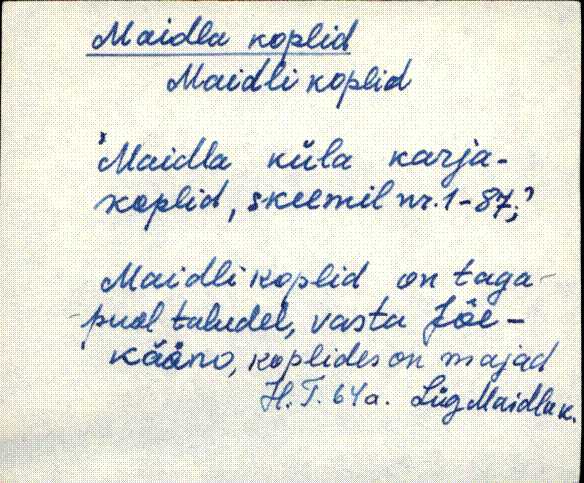 Maidla koplid
Maidli koplid
'Maidla küla karja-
koplid, skeemil nr. 1-87;'
Maidli koplid on taga-
puol taludel, vasta Jõe-
kääno, koplides on majad
H. T. 64 a. Lüg Maidla k.